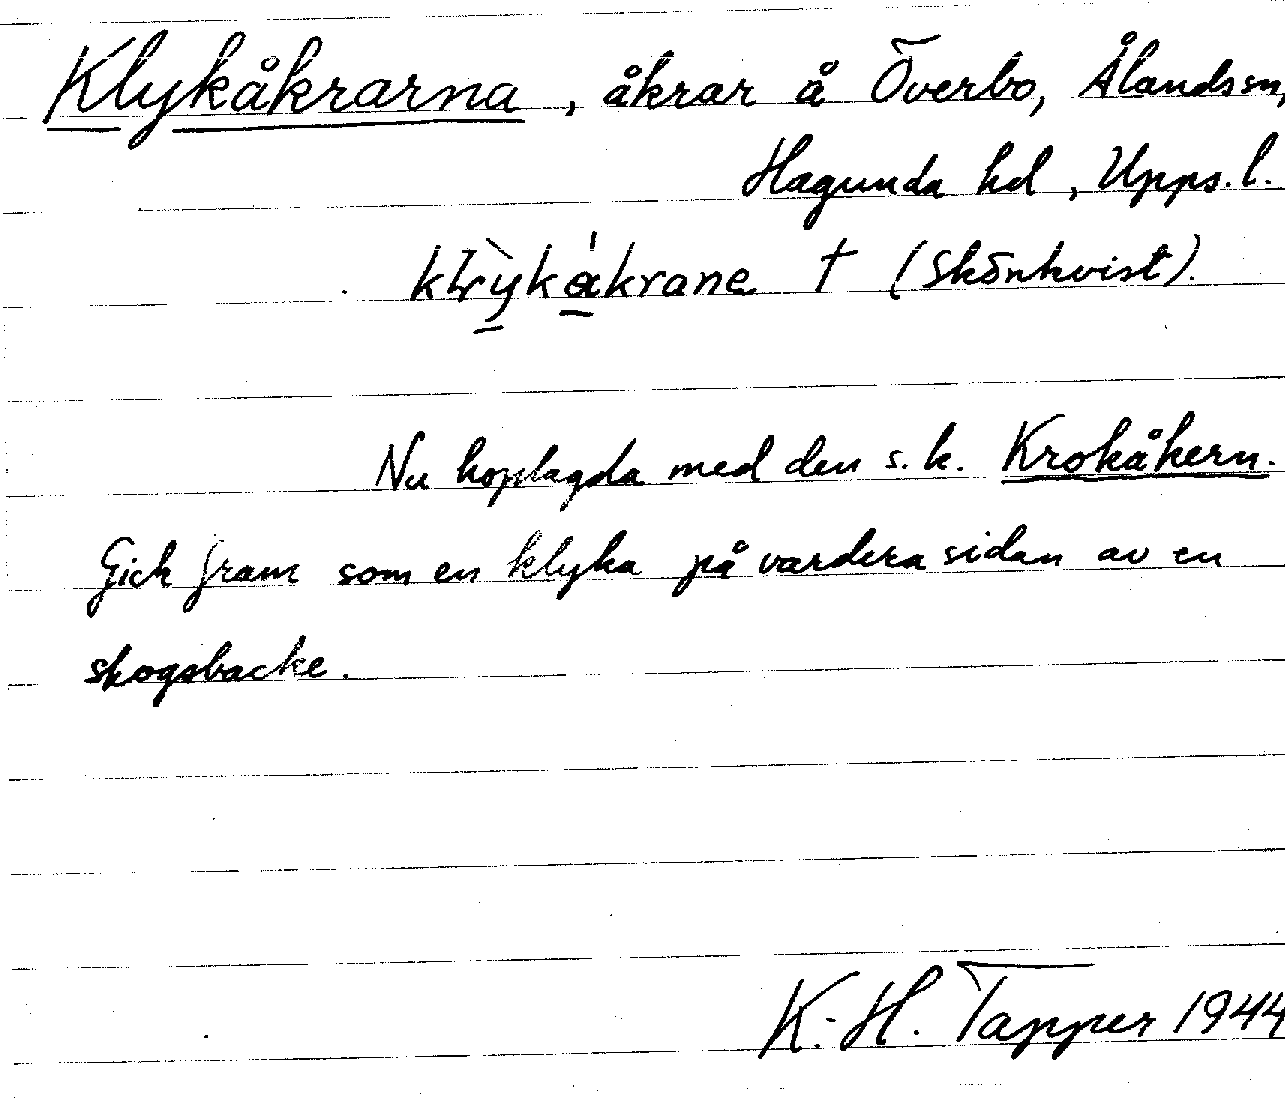 Klykåkrarna, åkrar å Överbo, Ålands sn,
Hagunda hd, Upps. l.
† (Skönkvist).
Nu hoplagda med den s.k. Krokåkern.
Gick fram som en klyka på vardera sidan av en
skogsbacke.
K.-H. Tapper 1944